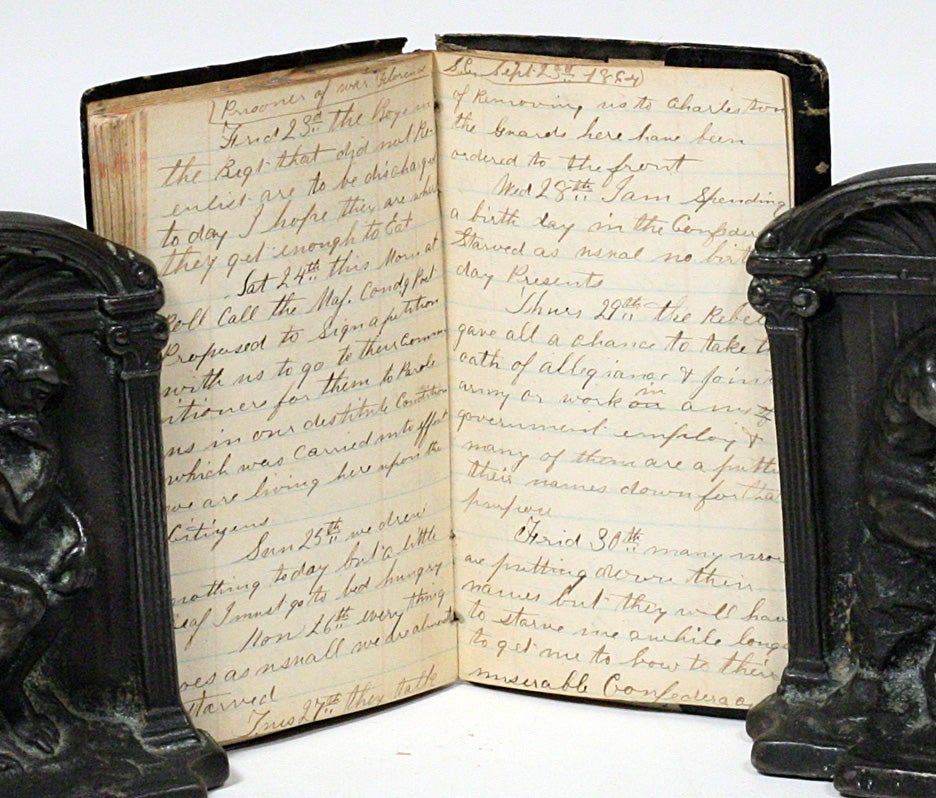 Prisoner of war Florence
Frid 23d the Boys in
the Regt that did not Re-
enlist are to be discharged
to day I hope they are where
they get enough to Eat
Sat 24th this Morn at
Roll Call the Maj. Comdg Post
Proposed to sign a petition
with us to go to their Comm
itioners for them to Parole
us in our destitute Condition
which was carried into effect
we are living here upon the
Citizens
Sun 25th we drew
nothing to day but a little
I must go to bed hungry
Mon 26th every thing
goes as usuall we are almost
starved
Tues 27th they talk
S.C. Sept 23rd 1864)
of Removing us to Charleston
the Guards here have been
ordered to the front
Wed 28th I am Spending
a birth day in the Confeder
Starved as usual no birt
day Presents
Thurs 29th the Rebel
gave all a chance to take t
oath of allegiance & join
army or work in on a
government employ &
many of them are a putti
their names down for tha
purpose
Frid 30th many more
are putting down their
names but they will hav
to starve me awhile longe
to get me to bow to their
miserable Confederac